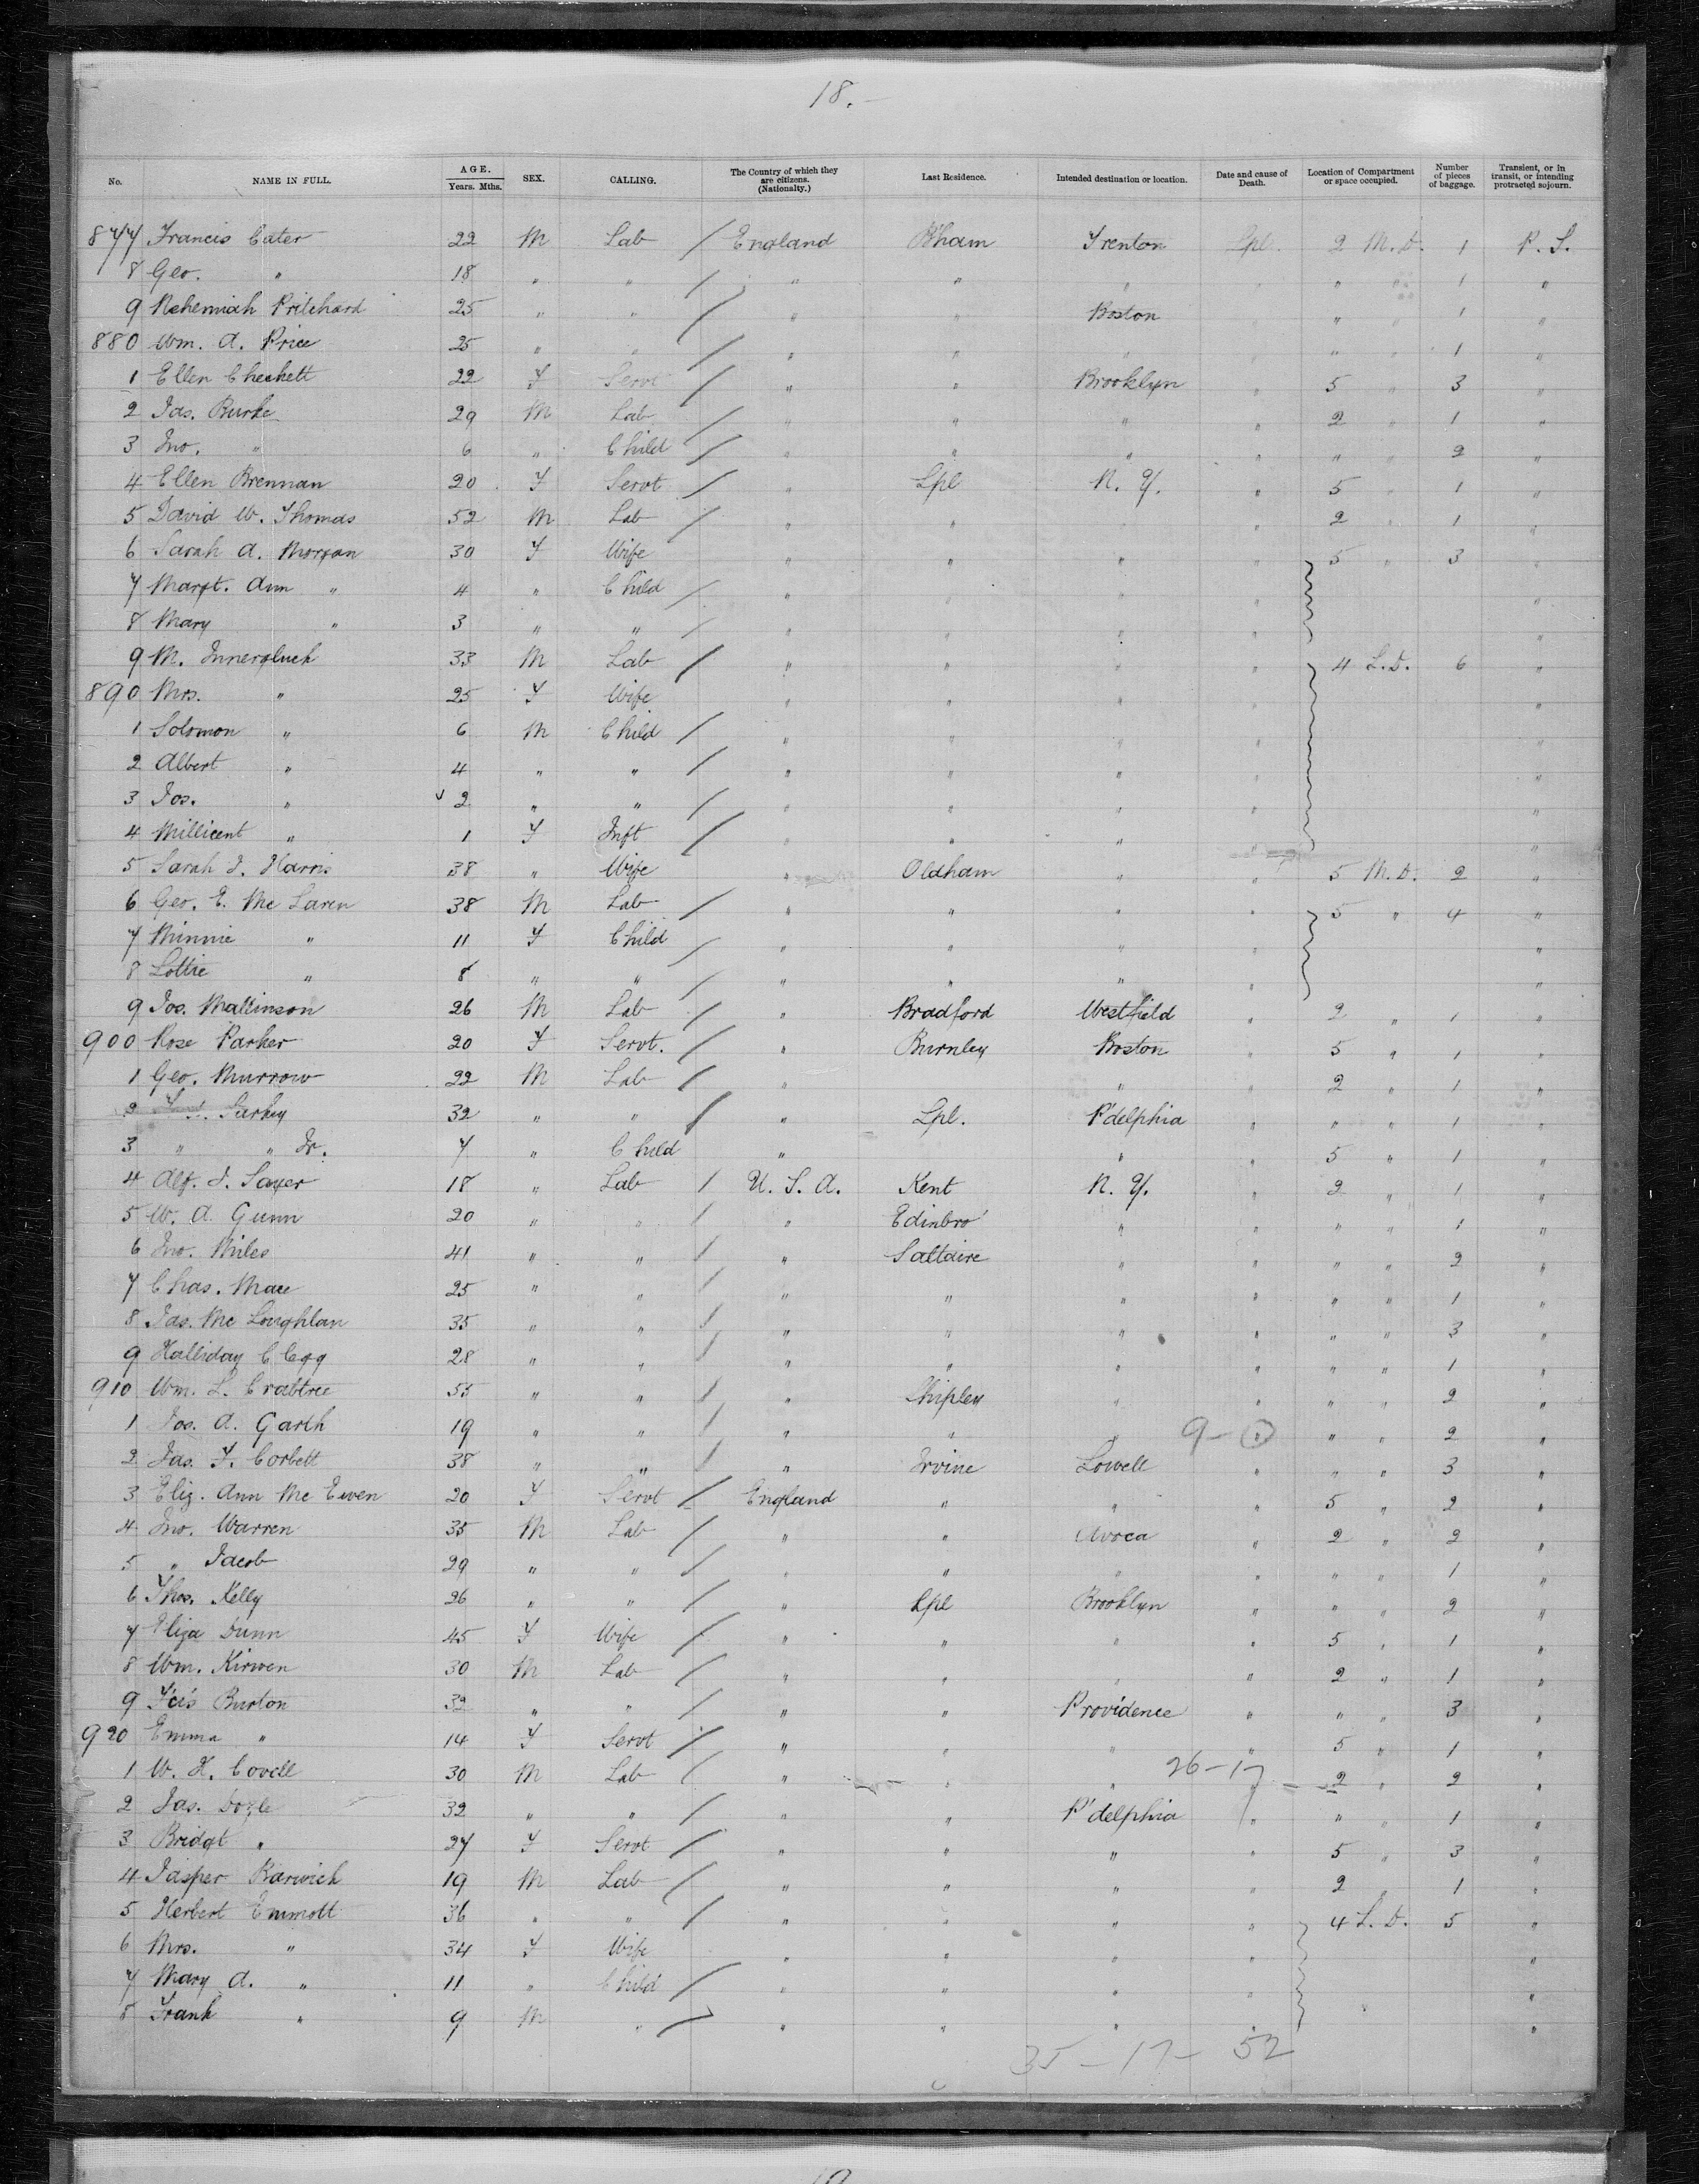 18.-
No. NAME IN FULL. AGE. Years. Mths. SEX. CALLING. The Country of which they are citizens. (Nationalty.) Last Residence. Intended destination or location. Date and cause of Death. Location of Compartment or space occupied. Number of pieces of baggage. Transient, or in transit, or intending protracted sojourn.
877 Francis Cater 22 M Lab / England B'ham Trenton Lpl. 2 M.D. 1 P.S.
8 Geo. " 18 " " / " " " " " " 1 "
9 Nehemiah Pritchard 25 " " / " " Boston " " " 1 "
880 Wm. A. Price 25 " " / " " " " " " 1 "
1 Ellen Checkett 22 F Servt / " " Brooklyn " 5 " 3 "
2 Jas. Burke 29 M Lab / " " " " 2 " 1 "
3 Jno. " 6 " Child / " " " " " " 2 "
4 Ellen Brennan 20 F Servt / " Lpl N.Y. " 5 " 1 "
5 David W. Thomas 52 M Lab / " " " " 2 " 1 "
6 Sarah A. Morgan 30 F Wife " " " " 5 " 3 "
7 Margt. Ann " 4 " Child / " " " " "
8 Mary " 3 " " / " " " " "
9 M. Innergluck 33 M Lab / " " " " 4 L.D. 6 "
890 Mrs. " 25 F Wife " " " " "
1 Solomon " 6 M Child / " " " " "
2 Albert " 4 " " / " " " " "
3 Jos. " 2 " " / " " " " "
4 Millicent " 1 F Inft / " " " " "
5 Sarah J. Harris 38 " Wife " Oldham " " 5 M.D. 2 "
6 Geo. E. Mc Laren 38 M Lab / " " " " 5 " 4 "
7 Minnie " 11 F Child / " " " " "
8 Lottie " 8 " " / " " " " "
9 Jos. Mallinson 26 M Lab / " Bradford Westfield " 2 " 1 "
900 Rose Parker 20 F Servt. / " Burnley Boston " 5 " 1 "
1 Geo. Murrow 22 M Lab / " " " " 2 " 1 "
2 Sarkey 32 " " / " Lpl. P'delphia " " " 1 "
3 " " Jr. 7 " Child " " " 5 " 1 "
4 Alf. J. Sayer 18 " Lab / U.S.A. Kent N.Y. " 2 " 1 "
5 W. A. Gunn 20 " " / " Edinbro' " " " " 1 "
6 Jno. Miles 41 " " / " Saltaire " " " " 2 "
7 Chas. Mace 25 " " / " " " " " " 1 "
8 Jas. Mc Loughlan 35 " " / " " " " " " 3 "
9 Halliday Clegg 28 " " / " " " " " " 1 "
910 Wm. L. Crabtree 55 " " / " Shipley " " " " 2 "
1 Jos. A. Garth 19 " " / " " " 9- " " " 2 "
2 Jas. F. Corbett 38 " " / " Irvine Lowell " " " 3 "
3 Eliz. Ann Mc Ewen 20 F Servt / England " " " 5 " 2 "
4 Jno. Warren 35 M Lab / " " Avoca " 2 " 2 "
5 " Jacob 29 " " / " " " " " " 1 "
6 Thos. Kelly 26 " " / " Lpl Brooklyn " " " 2 "
7 Eliza Dunn 45 F Wife / " " " " 5 " 1 "
8 Wm. Kirwen 30 M Lab / " " " " 2 " 1 "
9 F'cis Burton 32 " " / " " Providence " " " 3 "
920 Emma " 14 F Servt / " " " " 5 " 1 "
1 W. H. Covell 30 M Lab / " " " 26-17 2 " 2 "
2 Jas. Dogle 32 " " / " " P'delphia " " " 1 "
3 Bridgt " 27 F Servt / " " " " 5 " 3 "
4 Jasper Barwick 19 M Lab / " " " " 2 1 "
5 Herbert Emmott 36 " " / " " " " 4 L.D. 5 "
6 Mrs. " 34 F Wife " " " " "
7 Mary A. " 11 " Child / " " " " "
8 Frank " 9 M " / " " " " "
35-17- 52